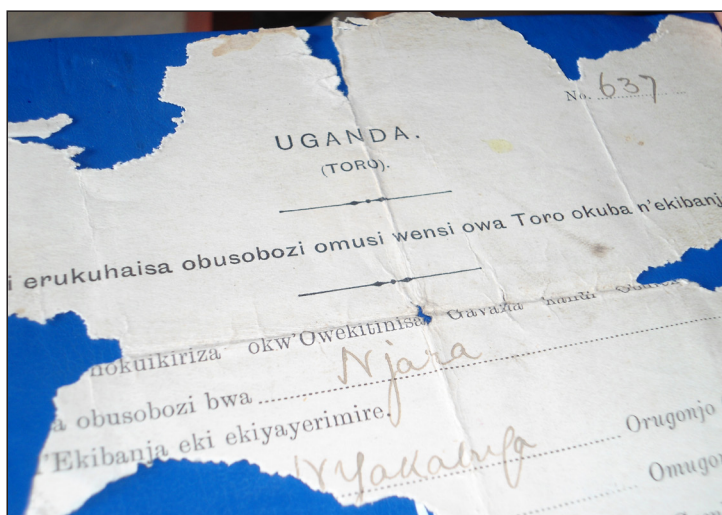 No. 637
UGANDA.
(TORO).
i erukuhaisa obusobozi omusi wensi owa Toro okuba n'ekibanj
nokuikiriza okw'Owekitinisa Gavana kandi
a obusobozi bwa Njara
'Ekibanja eki ekiyayerimire.
Orugonjo
Omugon